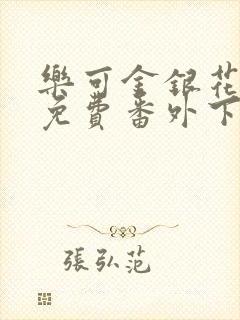 樂可金銀花
免費番外下
張弘范